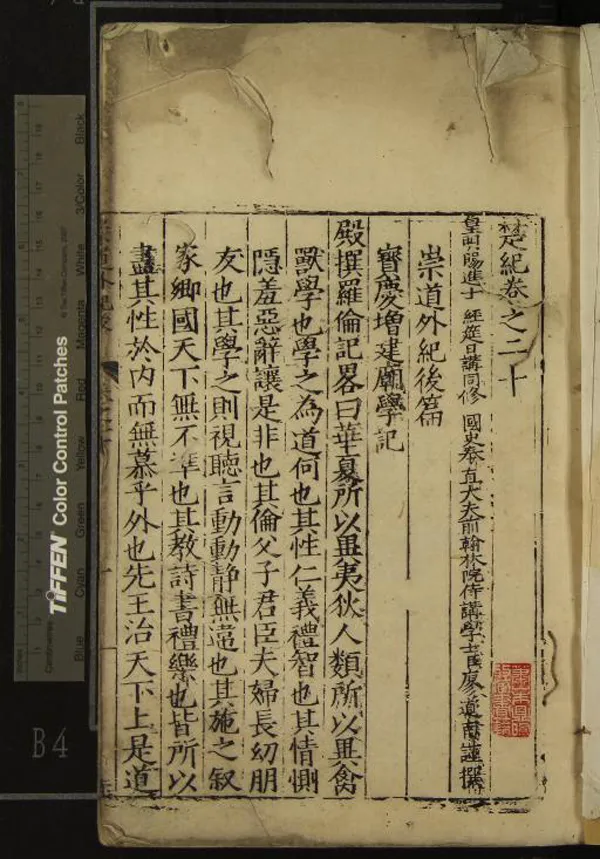 楚紀卷之二十
皇明賜進士 經筵日講同修 國史奉直大夫前翰林院侍講學士臣廖道南謹撰
崇道外紀後篇
寶慶增建廟學記
殿撰羅倫記畧曰華夏所以異夷狄人類所以異禽
獸學也學之為道何也其性仁義禮智也其情惻
隱羞惡辭讓是非也其倫父子君臣夫婦長幼朋
友也其學之則視聽言動動靜無違也其施之叙
家鄉國天下無不準也其教詩書禮樂也皆所以
盡其性於內而無慕乎外也先王治天下上是道
TIFFEN Color Control Patches
© The Tiffen Company, 2007
Blue
Cyan
Green
Yellow
Red
Magenta
White
3/Color
Black
Inches
Centimetres
B4